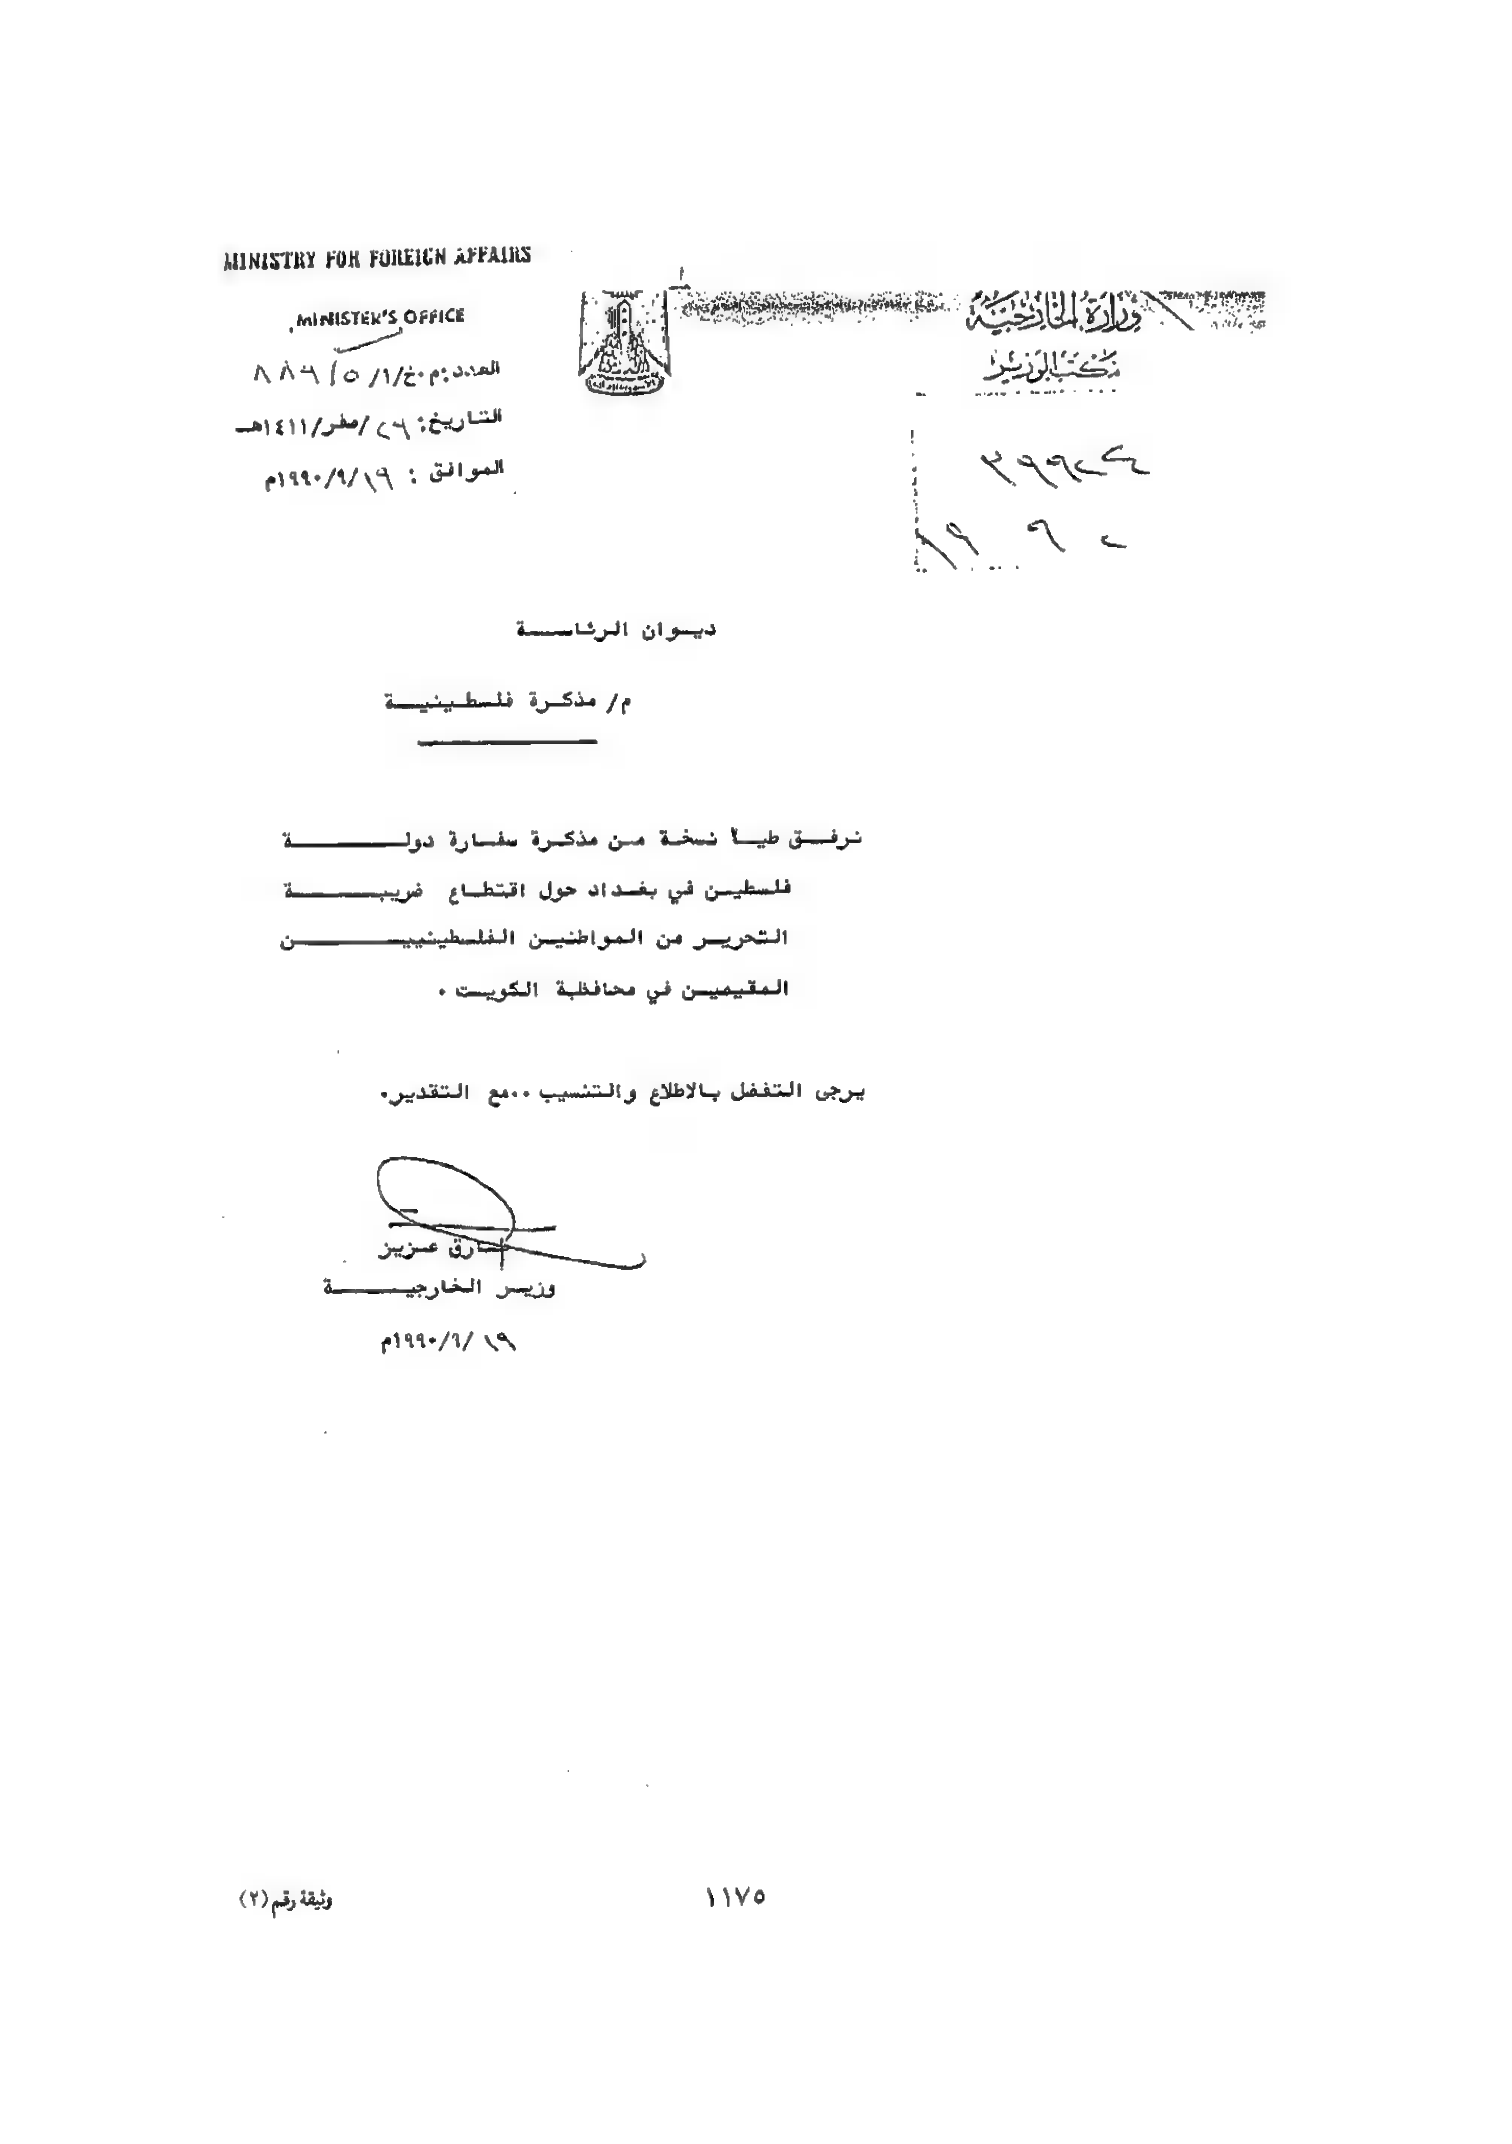 MINISTRY FOR FOREIGN AFFAIRS
MINISTER'S OFFICE
وزارة الخارجية
مكتب الوزير
العدد: م.خ/١/٥/٨٨٩
التاريخ: ٢٩/صفر/١٤١١هـ
الموافق: ١٩/٩/١٩٩٠م
١٩ ٩
ديوان الرئاسة
م/ مذكرة فلسطينية
نرفق طياً نسخة من مذكرة سفارة دولة
فلسطين في بغداد حول اقتطاع ضريبة
التحرير من المواطنين الفلسطينيين
المقيمين في محافظة الكويت .
يرجى التفضل بالاطلاع والتنسيب ..مع التقدير.
طارق عزيز
وزير الخارجية
١٩/٩/١٩٩٠م
١١٧٥
وثيقة رقم (٢)